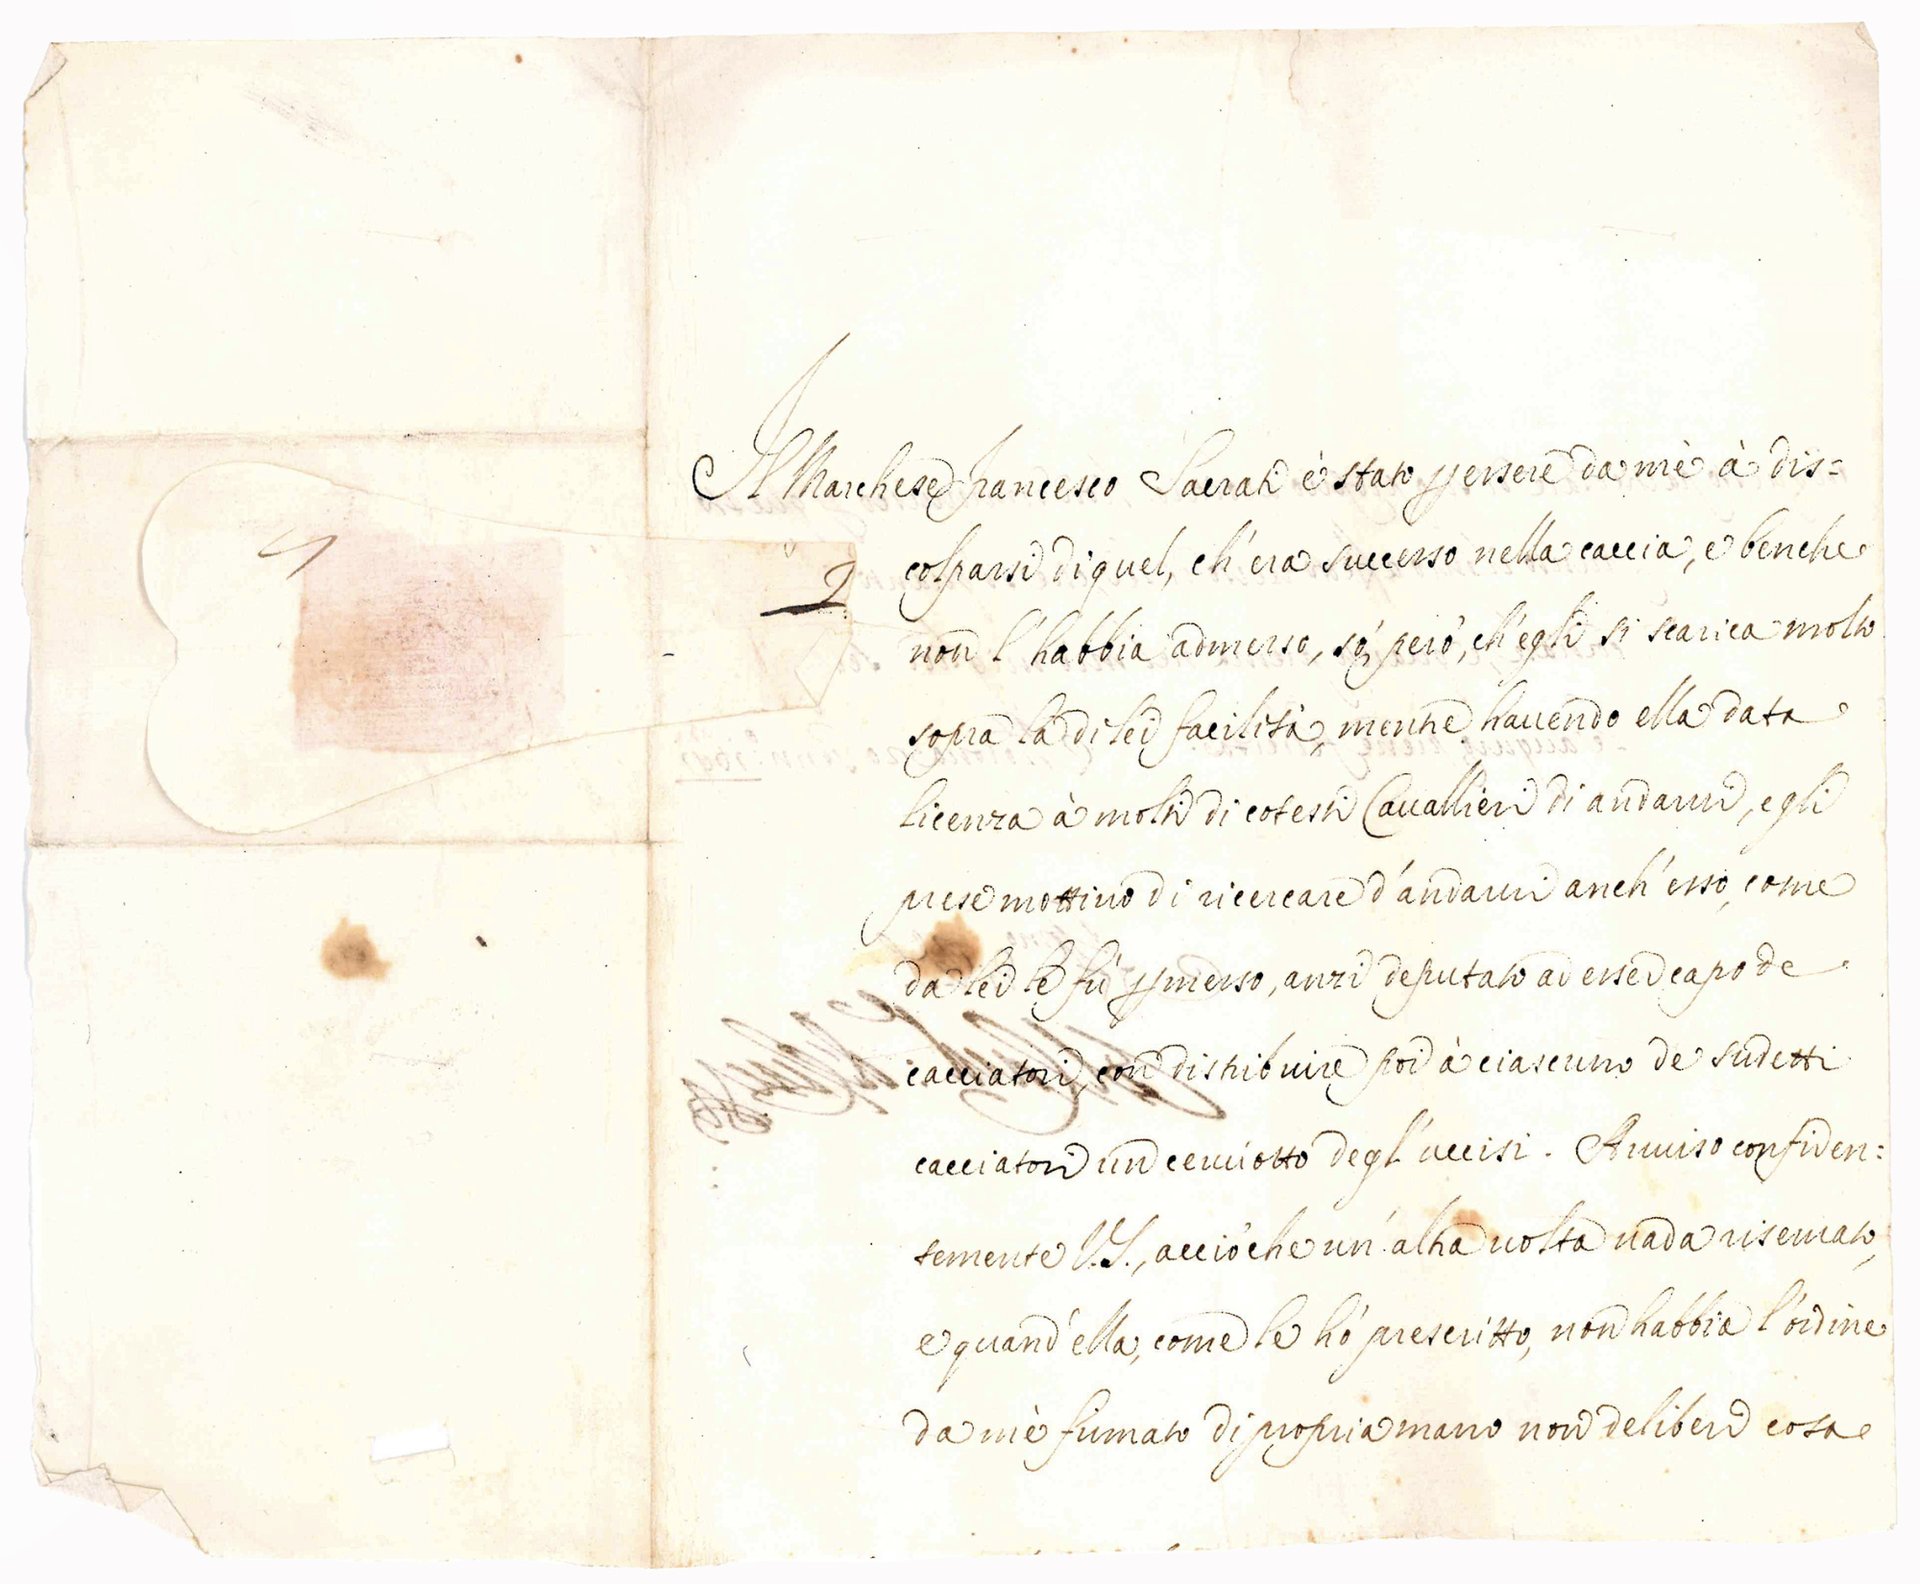 Il Marchese Francesco Sacrati è stato per essere da mè à dis=
colparsi di quel, ch'era successo nella caccia, e benche
non l'habbia admesso, sò però, ch'egli si scarica molto
sopra la di lei facilità, mentre hauendo ella data
licenza à molti di cotesti Cauallieri di andarui, egli
prese mottiuo di ricercare d'andarui anch'esso, come
da lei le fù permesso, anzi deputato ad esser capo de
cacciatori, con distribuire poi à ciascuno de sudetti
cacciatori un ceruiotto degl'uccisi. Auuiso confiden:
temente V.S., acciò che un'altra uolta uada riseruato,
e quand'ella, come le hò prescritto, non habbia l'ordine
da mè firmato di propria mano non deliberi cosa
2